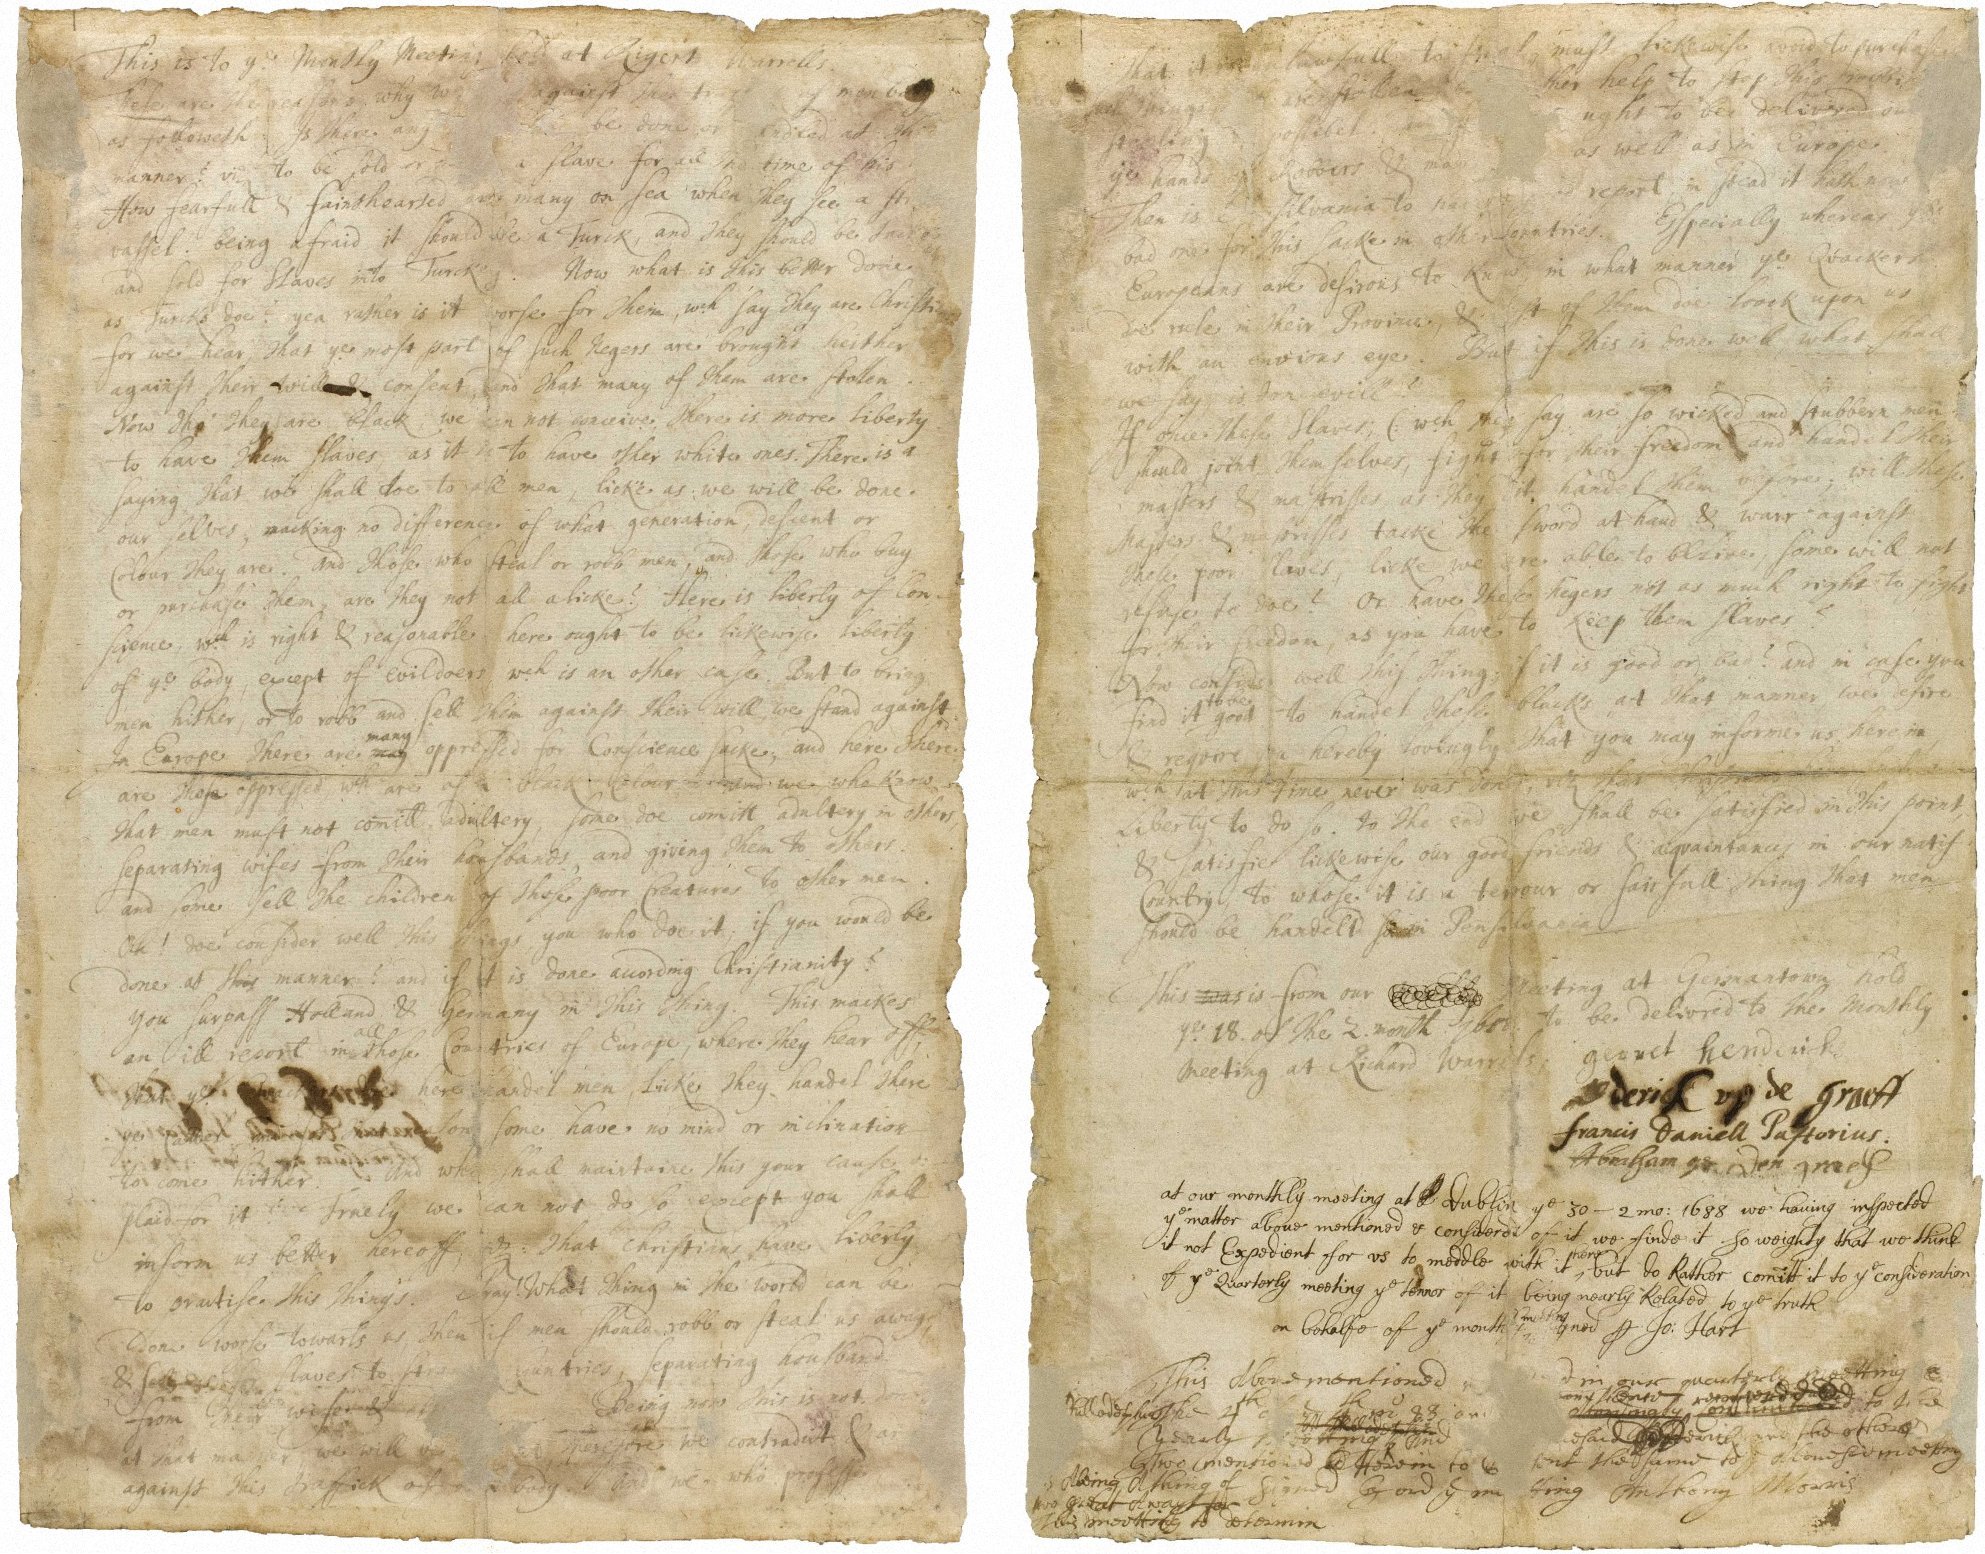 This is to yͤ Monthly Meeting held at Rigert Warrells.
These are the reasons why we against the traf of men body
as followeth: Is there any be done or handled at this
manner? viz to be sold or a slave for all the time of his
How fearfull & fainthearted are many on sea when they see a
vassel. being afraid it should be a Turck, and they should be tacken
and sold for Slaves into Turckey. Now what is this better done
as Turcks doe? yea rather is it worse for them, wch say they are Christi
for we hear, that yͤ most part of such Negers are brought heither
against their will & consent, and that many of them are stollen.
Now tho they are black, we can not conceive there is more liberty
to have them slaves, as it is to have other white ones. There is a
saying, that we shall doe to all men, licke as we will be done
our selves; macking no difference of what generation, descent or
Colour they are. And those who steal or robb men, and those who buy
or purchase them, are they not all alicke? Here is liberty of Con-
science, wch is right & reasonable, here ought to be lickewise liberty
of yͤ body, except of evildoers, wch is an other case. But to bring
men hither, or to robb and sell them against their will, we stand against.
In Europe there are many oppressed for Conscience sacke; and here there
are those oppressed wch are of a black Colour. And we who know
that men must not comitt adultery, some doe comitt adultery in others,
separating wifes from their housbands, and giving them to others.
and some sell the children of those poor Creatures to other men.
Oh! doe consider well this things, you who doe it; if you would be
done at this manner? and if it is done according Christianity?
you surpass Holland & Germany in this thing. This mackes
an ill report in all those Countries of Europe, where they hear off,
that yͤ Quackers doe here handel men, licke they handel there
yͤ Cattel; and for that reason some have no mind or inclination
to come hither. And who shall maintaine this your cause or
plaid for it! Truely we can not do so except you shall
inform us better hereoff, viz: that christians have liberty
to practise this things. Pray! What thing in the world can be
done worse towarts us then if men should robb or steal us away,
& sell us for slaves to strange Countries, separating housband
from their wife & Being now this is not done
at that manner we will be therefore we contradict & are
against this traffick of men body. And we who profess
that it is not lawfull to steal, must lickewise avoid to purchase
such things as are stollen, but rather help to stop this robbing
stealing if possibel and ought to be delivered out
yͤ hands of yͤ Robbers & as well as in Europe.
Then is Pensilvania to have a good report, in stead it hath now
bad one for this sacke in other Countries. Especially whereas yͤ
Europeans are desirous to know in what manner yͤ Quackers
doe rule in their Province, & most of them doe loock upon us
with an envious eye. But if this is done well, what shall
we say, is don evill?
If once these Slaves, (: wch they say are so wicked and stubbern men
should joint themselves, fight for their freedom and handel their
masters & mastrisses, as they did handel them before; will these
masters & mastrisses tacke the sword at hand & warr against
these poor slaves, licke we are able to believe, some will not
refuse to doe? Or have these Negers not as much right to fight
for their freedom, as you have to keep them slaves?
Now consider well this thing, if it is good or bad? and in case you
find it to be good to handel these blacks at that manner, we desire
& require you hereby lovingly that you may informe us herein,
wch at this time never was done, viz that Christians have such a
Liberty to do so. to the end we shall be satisfied in this point,
& satisfie lickewise our good friends & acquaintances in our natif
Country, to whose it is a terrour or fairfull thing that men
should be handeld so in Pensilvania
This was is from our Meeting at Germantown hold
yͤ 18. of the 2. month 1688. to be delivred to the Monthly
Meeting at Richard Warrels.
gerret hendericks
derick op de graeff
Francis Daniell Pastorius.
Abraham op Den graef
at our monthly meeting at Dublin yͤ 30 – 2 mo: 1688 we haueing inspected
yͤ matter aboue mentioned & considered of it we finde it so weighty that we think
it not Expedient for us to meddle with it here, but do Rather comitt it to yͤ consideration
of yͤ Quarterly meeting yͤ tennor of it being nearly Related to yͤ truth
on behalfe of yͤ month meeting signed P Jo: Hart
This Abovementioned was Read in our quarterly meetting at
Philadelphia the 4th of yͤ 4th mo 88 and
yearly meeting and
above mentioned to
being A thing of Signed by ord of yͤ meeting Anthony Morris
too great A wayt for
this meetting to determin